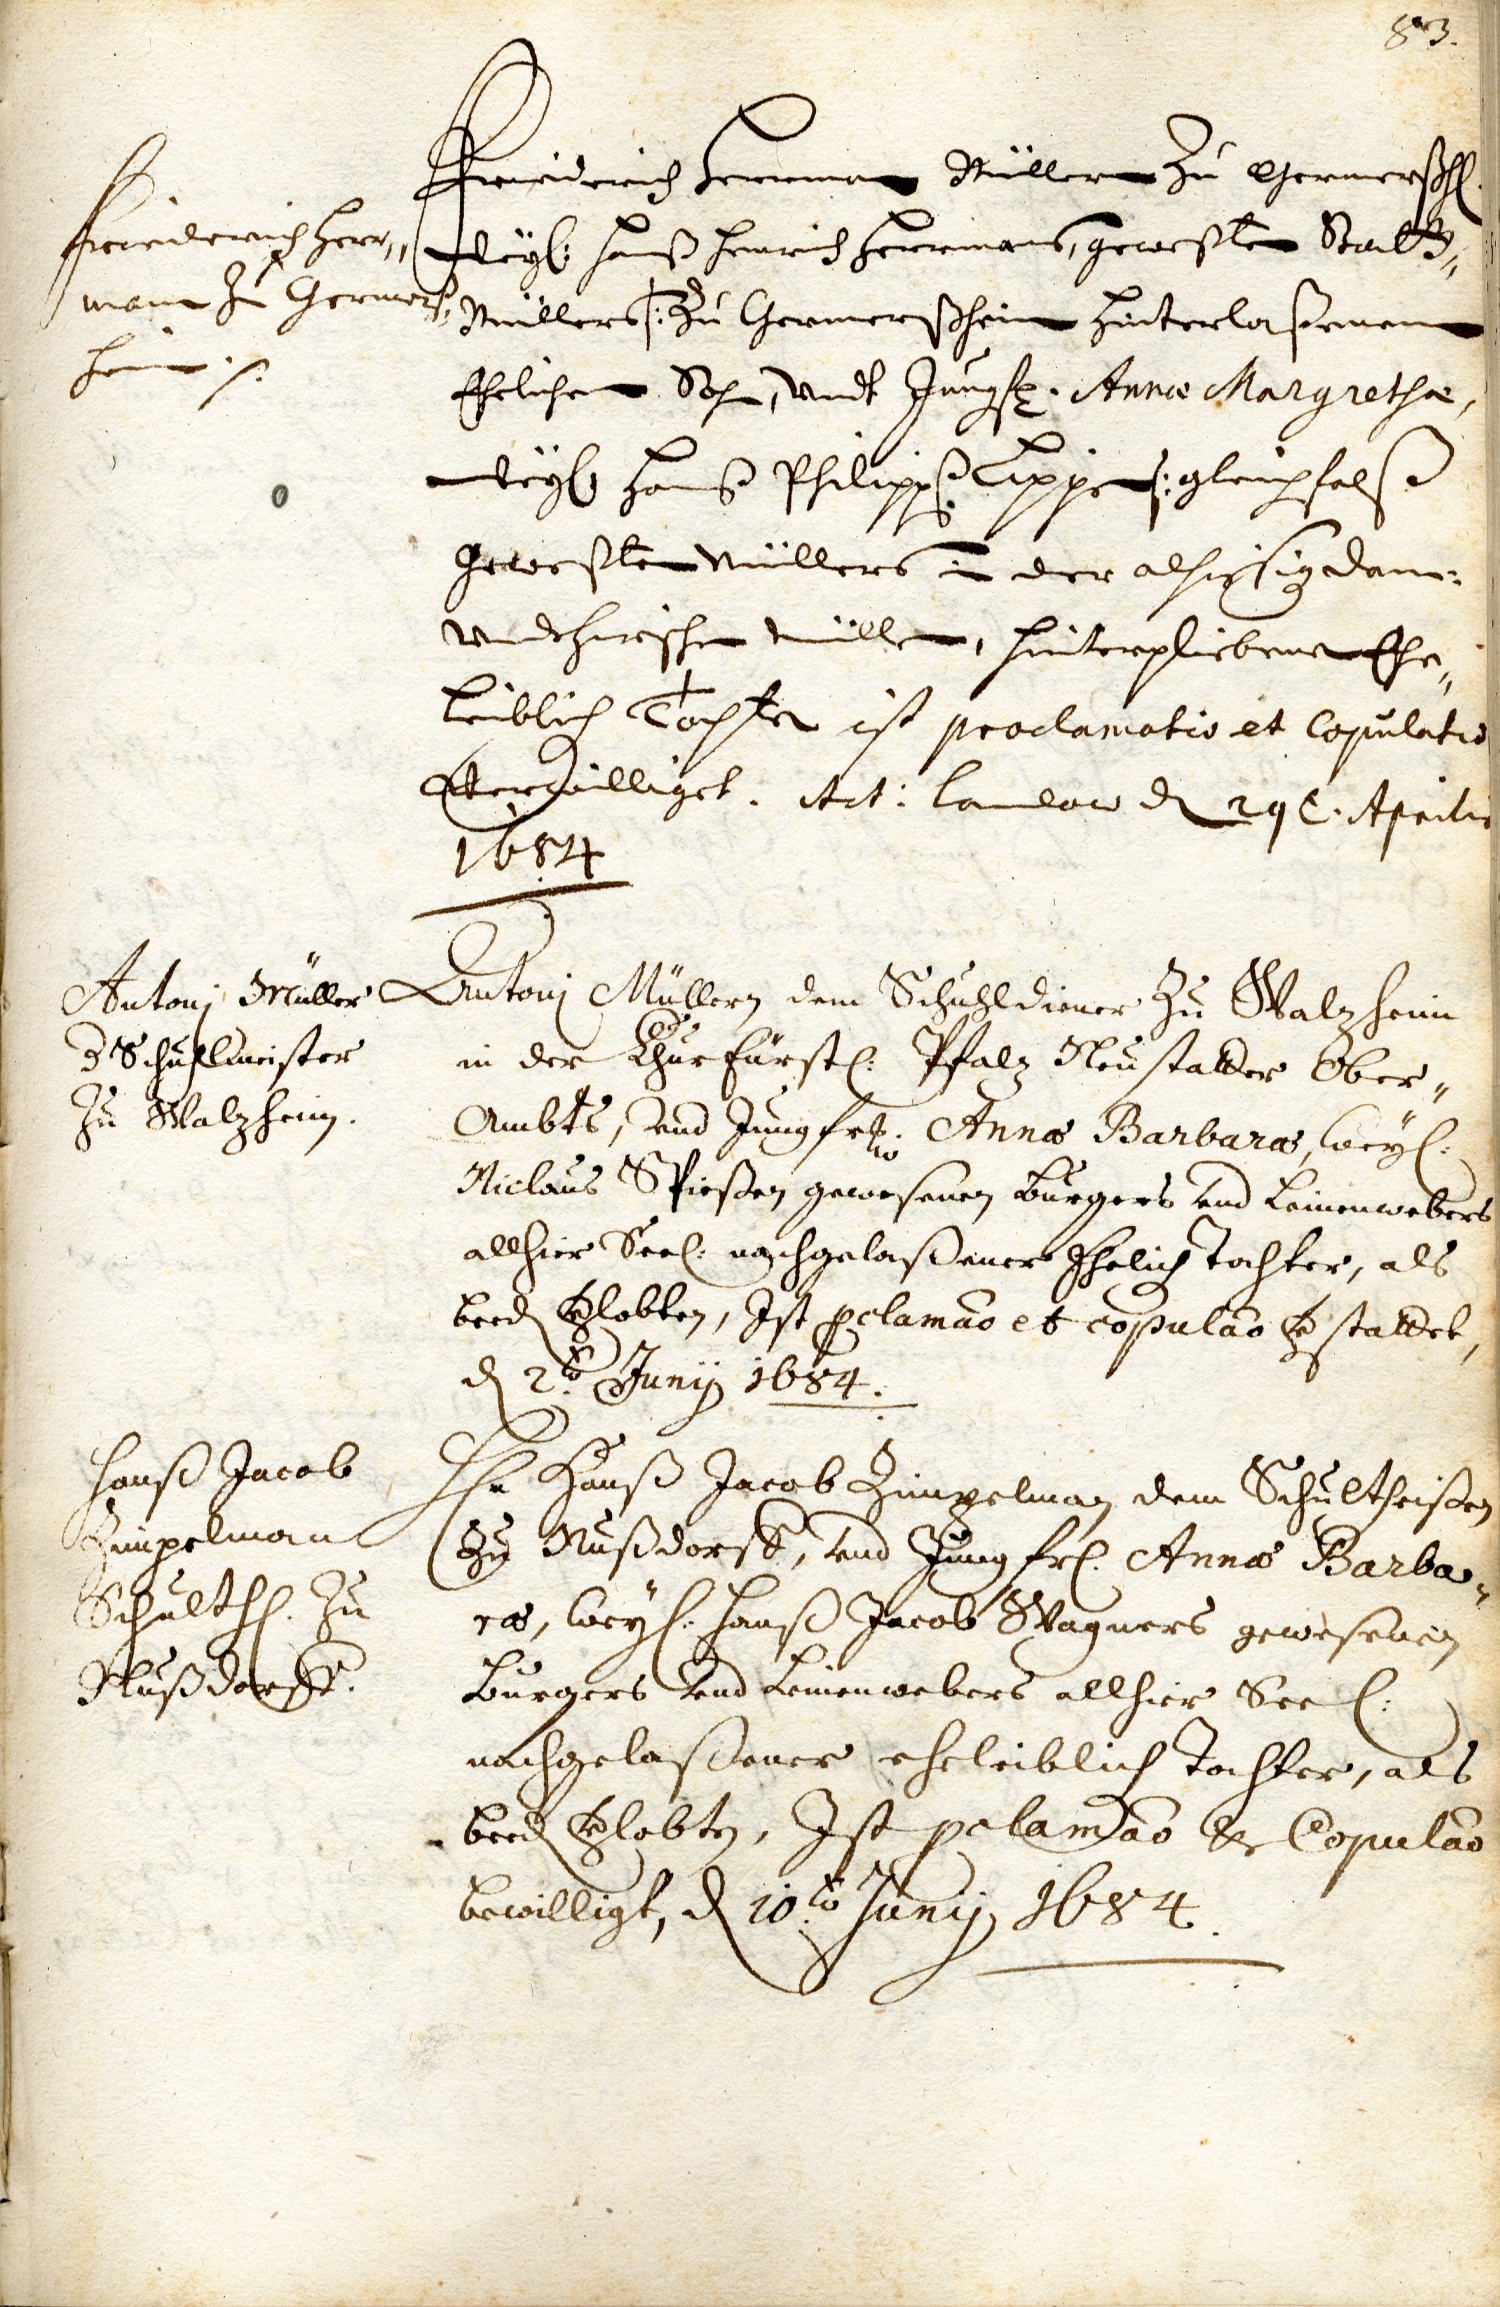 83.
Friederich Herr„
mann Zu Germerß„
heim.
Friederich Herrman Müllern Zu Germerßh.
weyl: Hanß Henrich Herrmans, geweßten Statt„
Müllers Zu Germerßheim Hinterlaßenem
Ehelichem Sohn, Undt Jungfr. Annæ Margrethæ,
weyl Hanß Philipps Lippen gleichfalß
Geweßten Müllers in der alhiesig
Müllen, hinterpliebene Ehe„
leiblich Tochter ist proclamatio et Copulatio
Verwilliget. Act: Landaw d 29 t. Aprilis
1684
Antonj Müller
d Schuhlmeister
Zu Walzheim.
Antonj Müllern dem Schuhldiener Zu Walzheim
in der ChurFürstl: Pfalz Neustatter Ober„
Ambts, und Jungfr. Annæ Barbaræ, weyl:
Niclaus Spießen gewesenen Burgers und Leinenwebers
allhier Seel: nachgelaßener Ehelich Tochter, als
beed Verlobten, Ist pclamāo et copulāo verstattet,
d 2.to Junij 1684.
Hanß Jacob
Zimpelman
Schulth. Zu
Nußdorff.
Hr. Hanß Jacob Zimpelman dem Schultheißen
Zu Nußdorff, und Jungfrl. Annæ Barba„
ræ, weyl: Hanß Jacob Wagners gewesenen
Burgers und Leinenwebers allhier Seel:
nachgelaßener eheleiblich Tochter, als
beed Verlobten, Ist pclamāo & Copulāo
bewilligt, d 10.to Junij 1684.